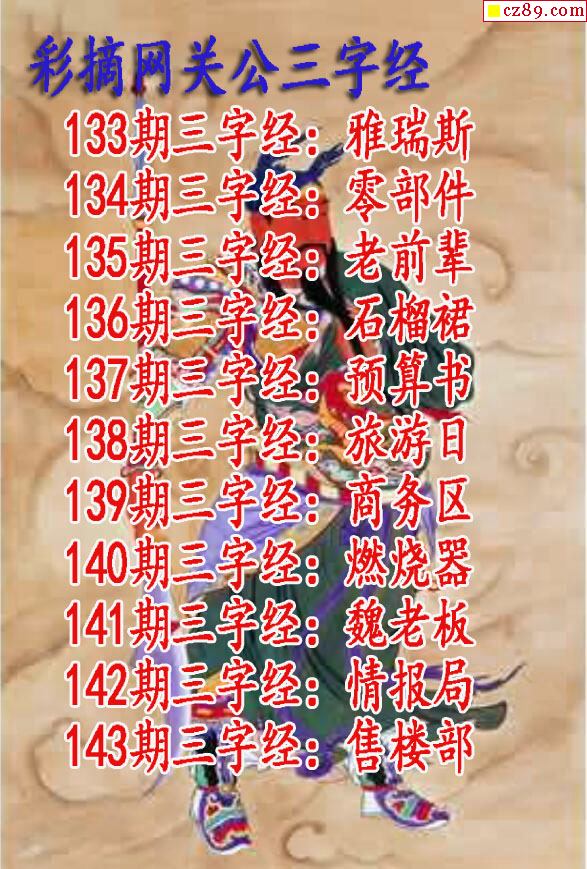 cz89.com
彩摘网关公三字经
133期三字经：雅瑞斯
134期三字经：零部件
135期三字经：老前辈
136期三字经：石榴裙
137期三字经：预算书
138期三字经：旅游日
139期三字经：商务区
140期三字经：燃烧器
141期三字经：魏老板
142期三字经：情报局
143期三字经：售楼部